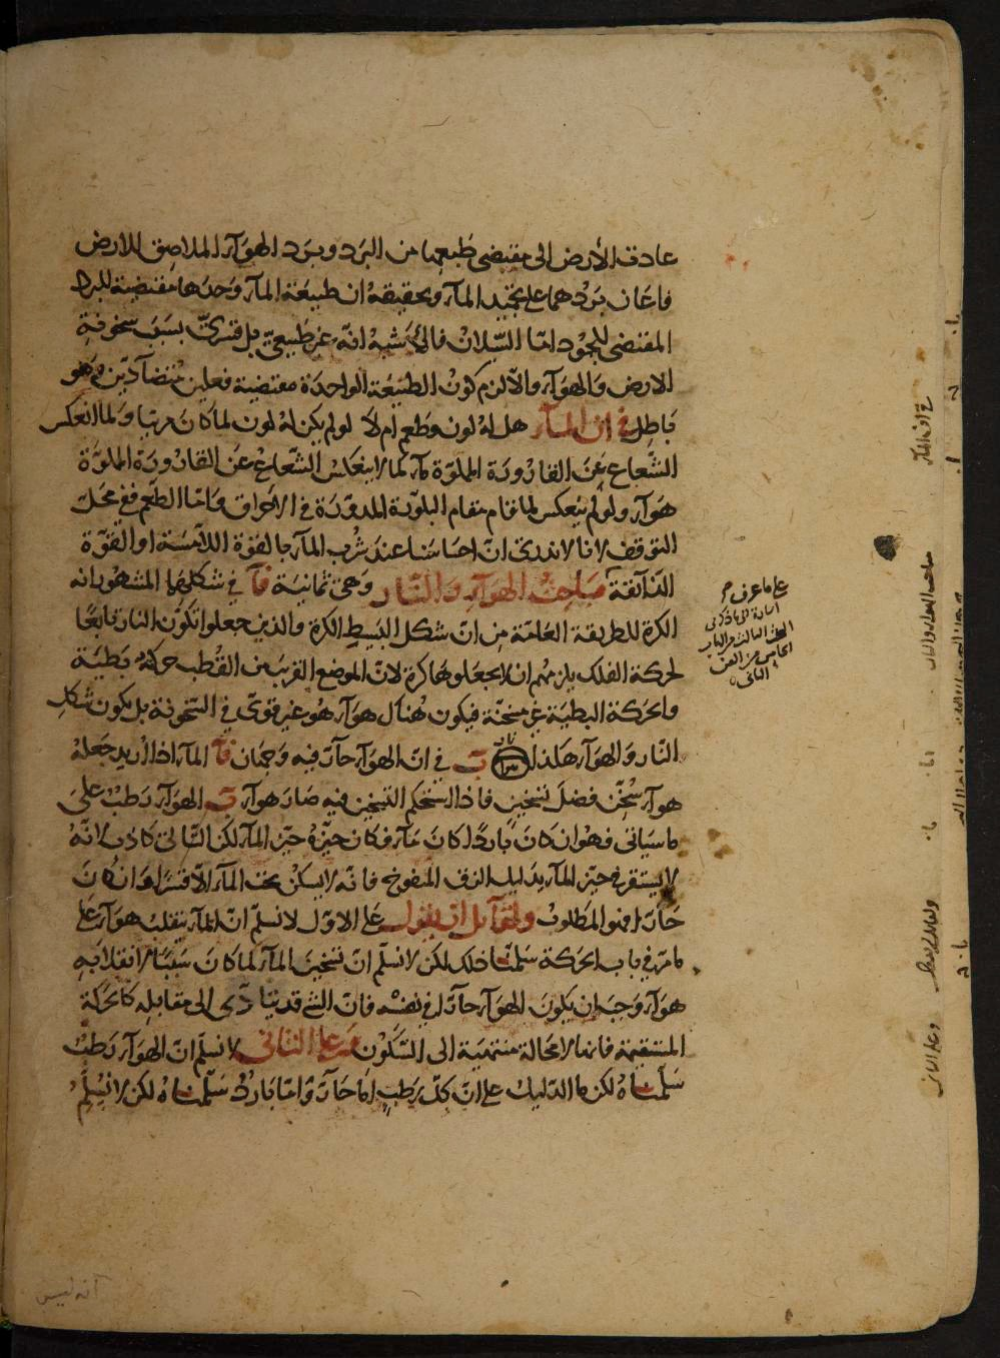 عادت الأرض الى مقتضى طبعها من البرد وبرد الهوآء الملاصق للارض
فاعان بردهما على تجميد المآء وتحقيقه ان طبيعة المآء وحدها مقتضية للبرد
المقتضى للجمود امّا السّيلان فالاشبه انّه غير طبيعيّ بل قسريّ بسبب سخونة
الارض والهوآء والّا لزم كون الطبيعة الواحدة مقتضية فعلين متضآدّين وهو
باطل في ان المآء هل له لون وطعم ام لا لو لم يكن له لون لما كان مرئيا ولما انعكس
الشّعاع عن القارورة المملوّة مآء كما لا ينعكس الشّعاع عن القارورة المملوّة
هوآء ولو لم ينعكس لما قام مقام البلّورة المدوّرة في الاحراق وامّا الطّعم ففي محلّ
التوقف لانا لا ندري انّ احساسنا عند شرب المآء بالقوّة اللآمسة او القوّة
الذآئقة مباحث الهوآء والنّار وهي ثمانية آ في شكلهما المشهور انه
الكرة للطريقة العامّة من انّ شكل البسيط الكرة والذين جعلوا تكوّن النار تابعًا
لحركة الفلك يلزمهم ان لا يجعلوهما كرة لانّ الموضع القريب من القطب حركته بطيئة
والحركة البطيئة غير مسخّنة فيكون هناك هوآء هو غير قويّ في السّخونة بل يكون شكل
النّار والهوآء هكذا ب في انّ الهوآء حارّ فيه وجهان آ المآء اذا اريد جعله
هوآء سُخّن فضل تسخين فاذا استحكم التسخين فيه صار هوآء ب الهوآء رطب على
ما سيأتي فهو ان كان باردًا كان مآء فكان حيّزه حيّز المآء لكن التّالى كاذب لانّه
لا يستقر في حيّز المآء بدليل الزق المنفوخ فانّه لا يسكن تحت المآء الّا قسرًا وان كان
حارّا فهو المطلوب ولقآئل ان يقول على الاوّل لا نسلّم انّ المآء ينقلب هوآء على
ما مرّ في باب الحركة سلّمنا ذلك لكن لا نسلّم انّ تسخين المآء لما كان سببًا لانقلابه
هوآء وجب ان يكون الهوآء حارّا في نفسه فانّ الشئ قد يتأدّى الى مقابله كالحركة
المستقيمة فانها لا محالة منتهية الى السّكون وعلى الثانى لا نسلّم انّ الهوآء رطب
سلّمناه لكن ما الدّليل على انّ كلّ رطب امّا حارّ وامّا بارد سلّمناه لكن لا نسلّم
على ما عرف م
البحث الثالث من الباب
الخامس من الفن
الثانى
مباحث الهوآء والنار
انه ليس